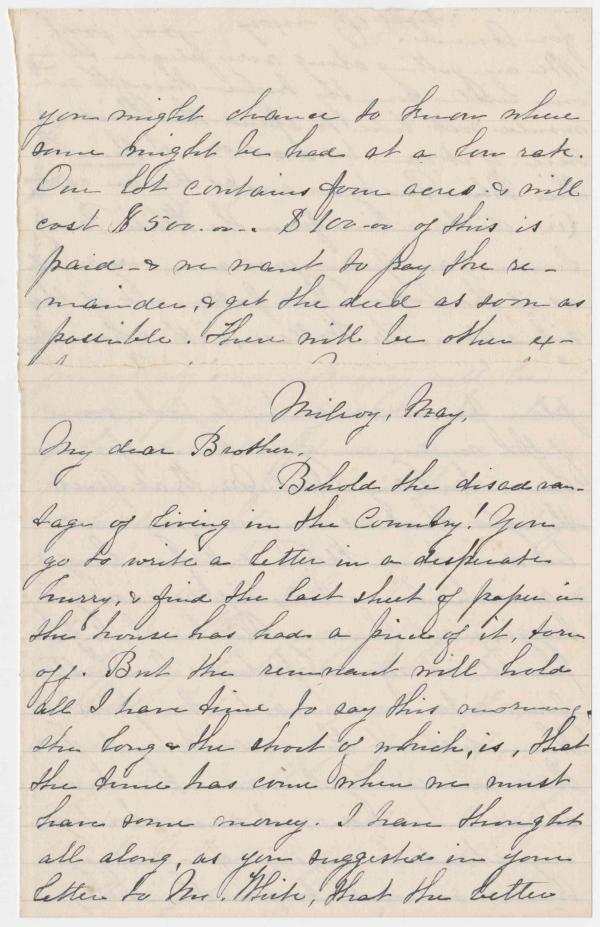 you might chance to know where
some might be had at a low rate.
Our lot contains four acres & will
cost $500.00. $100-00 of this is
paid - & we want to pay the re-
mainder, & get the deed as soon as
possible. There will be other ex-
Milroy, May,
My dear Brother,
Behold the disadvan-
tage of living in the Country! You
go to write a letter in a desperate
hurry, & find the last sheet of paper in
the house has had a piece of it, torn
off. But the remnant will hold
all I have time to say this morning,
the long & the short of which, is, that
the time has come when we must
have some money. I have thought
all along, as you suggested in your
letter to Mr. White, that the better